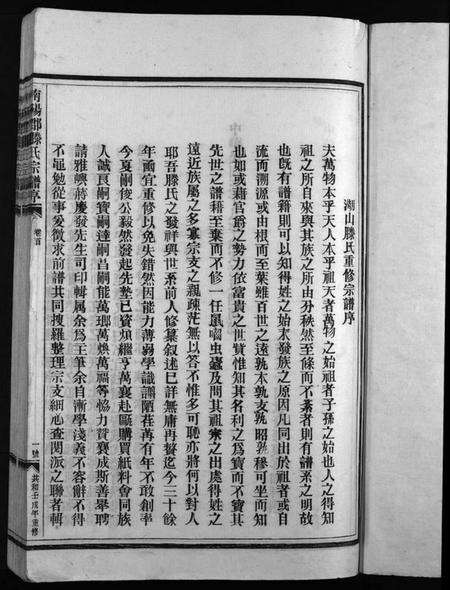 湖山滕氏重修宗譜序
夫萬物本乎天人本乎祖天者萬物之始祖者子孫之始也人之得知
祖之所自來與其族之所由分秩然至條而不紊者則有譜系之明故
也旣有譜籍則可以知得姓之始末發族之原因凡同出於祖者或自
流而溯源或由根而至葉雖百世之遠孰本孰支孰昭孰穆可坐而知
也如或藉官爵之勢力依富貴之世賞惟知其名利之爲寶而不寶其
先世之譜籍至葉而不修一任鼠嚙虫蠹及問其祖宗之出處得姓之
遠近族屬之多寡宗支之親疎茫無以答不惟多可恥亦將何以對人
耶吾滕氏之發祥與世系前人修纂叙述已詳無庸再贅迄今三十餘
年兩宜重修以免失錯然因能力薄弱學識譾陋荏苒有年不敢創率
今夏嗣俊公毅然發起先墊己資煩繼亨萬襄赴甌購買紙料會同族
人誠貝嗣寶嗣達嗣昌嗣能萬瑯萬煥萬福等恊力贊襄成斯善舉聘
請雅嶼蔣慶發先生司印輯屬余爲主筆余自漸學淺義不容辭不得
不黽勉從事爰徵求前譜其同搜羅整理宗支細心查閱派之聯者輯
南陽郡滕氏宗譜序
卷首
一號
共和壬戌年重修